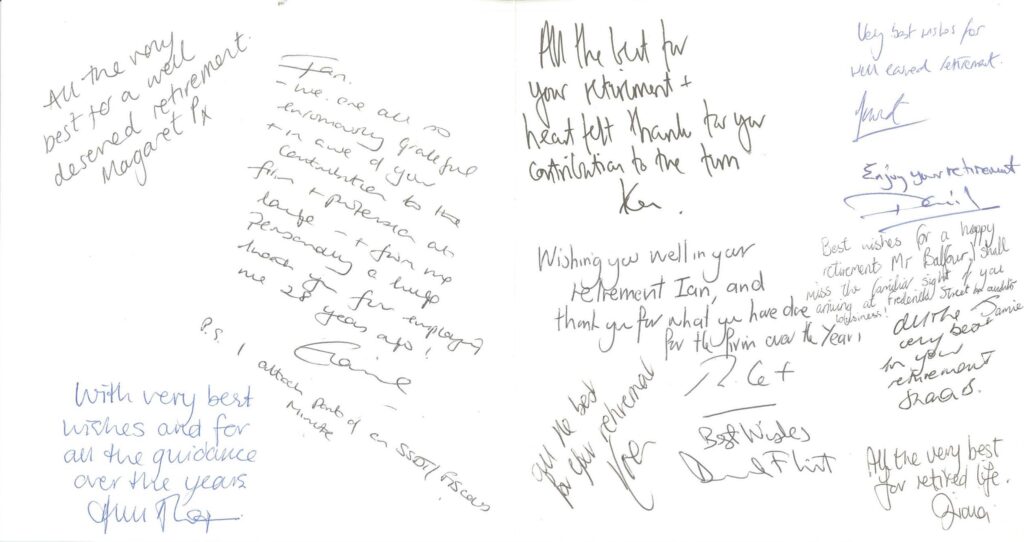 All the very
best for a well
deserved retirement.
Magaret Px
Ian.
- we are all so
enormously grateful
+ in awe of your
contribution to the
firm + profession at
large - + from me
personally a huge
thank you for employing
me 28 years ago!
P.S. I attach part of an SSDT/Fiscars
Minute
With very best
wishes and for
all the guidance
over the years
All the best for
your retirement +
heartfelt thanks for your
contribution to the firm
Ken.
Wishing you well in your
retirement Ian, and
thank you for what you have done
for the firm over the years
All the best
for your retirement
Best Wishes
David Flint
Very best wishes for
well earned retirement.
Enjoy your retirement
David
Best wishes for a happy
retirement Mr Balfour, I shall
miss the familiar sight of you
arriving at Frederick Street for
business!
Jamie
All the
very best
in your
retirement
Shona S.
All the very best
for retired life.